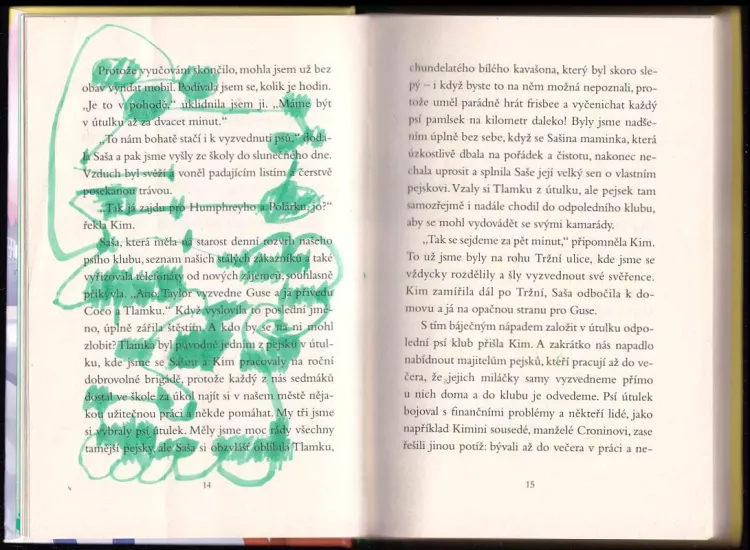 Protože vyučování skončilo, mohla jsem už bez
obav vyndat mobil. Podívala jsem se, kolik je hodin.
„Je to v pohodě,“ uklidnila jsem ji. „Máme být
v útulku až za dvacet minut.“
„To nám bohatě stačí i k vyzvednutí psů,“ doda-
la Saša a pak jsme vyšly ze školy do slunečného dne.
Vzduch byl svěží a voněl padajícím listím a čerstvě
posekanou trávou.
„Tak já zajdu pro Humphreyho a Polárku, jo?“
řekla Kim.
Saša, která měla na starost denní rozvrh našeho
psího klubu, seznam našich stálých zákazníků a také
vyřizovala telefonáty od nových zájemců, souhlasně
přikývla. „Ano, Taylor vyzvedne Guse a já přivedu
Coco a Tlamku.“ Když vyslovila to poslední jmé-
no, úplně zářila štěstím. A kdo by se na ni mohl
zlobit? Tlamka byl původně jedním z pejsků v útul-
ku, kde jsme se Sašou a Kim pracovaly na roční
dobrovolné brigádě, protože každý z nás sedmáků
dostal ve škole za úkol najít si v našem městě něja-
kou užitečnou práci a někde pomáhat. My tři jsme
si vybraly psí útulek. Měly jsme moc rády všechny
tamější pejsky, ale Saša si obzvlášť oblíbila Tlamku,
14
chundelatého bílého kavašona, který byl skoro sle-
pý – i když byste to na něm možná nepoznali, pro-
tože uměl parádně hrát frisbee a vyčenichat každý
psí pamlsek na kilometr daleko! Byly jsme nadše-
ním úplně bez sebe, když se Sašina maminka, která
úzkostlivě dbala na pořádek a čistotu, nakonec ne-
chala uprosit a splnila Saše její velký sen o vlastním
pejskovi. Vzaly si Tlamku z útulku, ale pejsek tam
samozřejmě i nadále chodil do odpoledního klubu,
aby se mohl vydovádět se svými kamarády.
„Tak se sejdeme za pět minut,“ připomněla Kim.
To už jsme byly na rohu Tržní ulice, kde jsme se
vždycky rozdělily a šly vyzvednout své svěřence.
Kim zamířila dál po Tržní, Saša odbočila k do-
movu a já na opačnou stranu pro Guse.
S tím báječným nápadem založit v útulku odpo-
lední psí klub přišla Kim. A zakrátko nás napadlo
nabídnout majitelům pejsků, kteří pracují až do ve-
čera, že jejich miláčky samy vyzvedneme přímo
u nich doma a do klubu je odvedeme. Psí útulek
bojoval s finančními problémy a někteří lidé, jako
například Kimini sousedé, manželé Croninovi, zase
řešili jinou potíž: bývali až do večera v práci a ne-
15